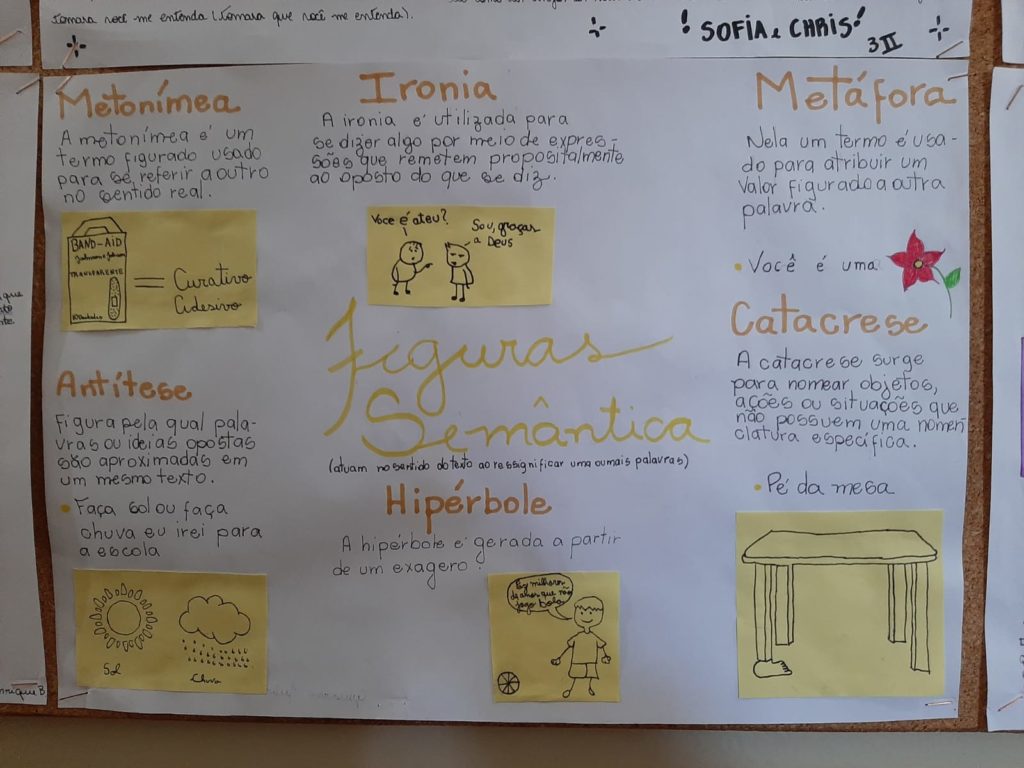 tomara você me entenda (tomara que você me entenda).
! SOFIA e CHRIS!
3II
Metonímea
A metonímea é um
termo figurado usado
para se referir a outro
no sentido real.
BAND-AID
Johnson & Johnson
TRANSPARENTE
= Curativo
Adesivo
Ironia
A ironia é utilizada para
se dizer algo por meio de expres-
sões que remetem propositalmente
ao oposto do que se diz.
Você é ateu?
Sou, graças
a Deus
Metáfora
Nela um termo é usa-
do para atribuir um
valor figurado a outra
palavra.
• Você é uma
Figuras
Semântica
(atuam no sentido do texto ao ressignificar uma ou mais palavras)
Antítese
Figura pela qual pala-
vras ou ideias opostas
são aproximadas em
um mesmo texto.
• Faça sol ou faça
chuva eu irei para
a escola
Sol
Chuva
Hipérbole
A hipérbole é gerada a partir
de um exagero.
Faz milhões
de anos que não
jogo bola
Catacrese
A catacrese surge
para nomear objetos,
ações ou situações que
não possuem uma nomen
clatura específica.
• Pé da mesa